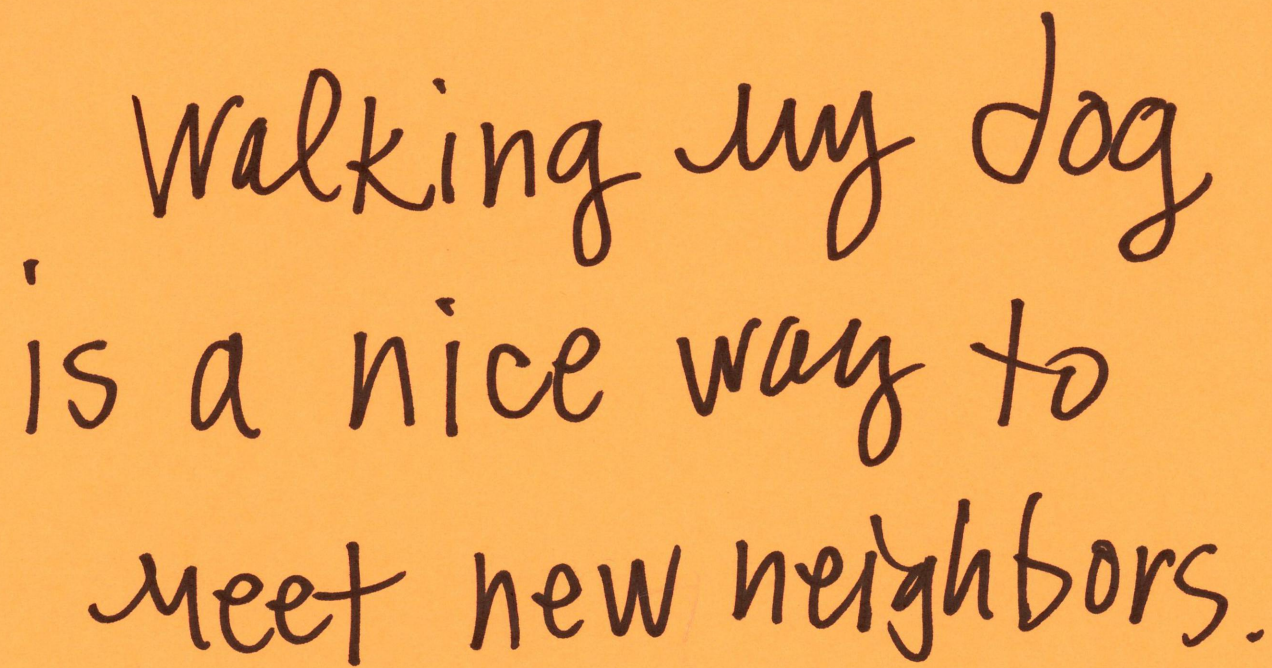 Walking my dog
is a nice way to
meet new neighbors.